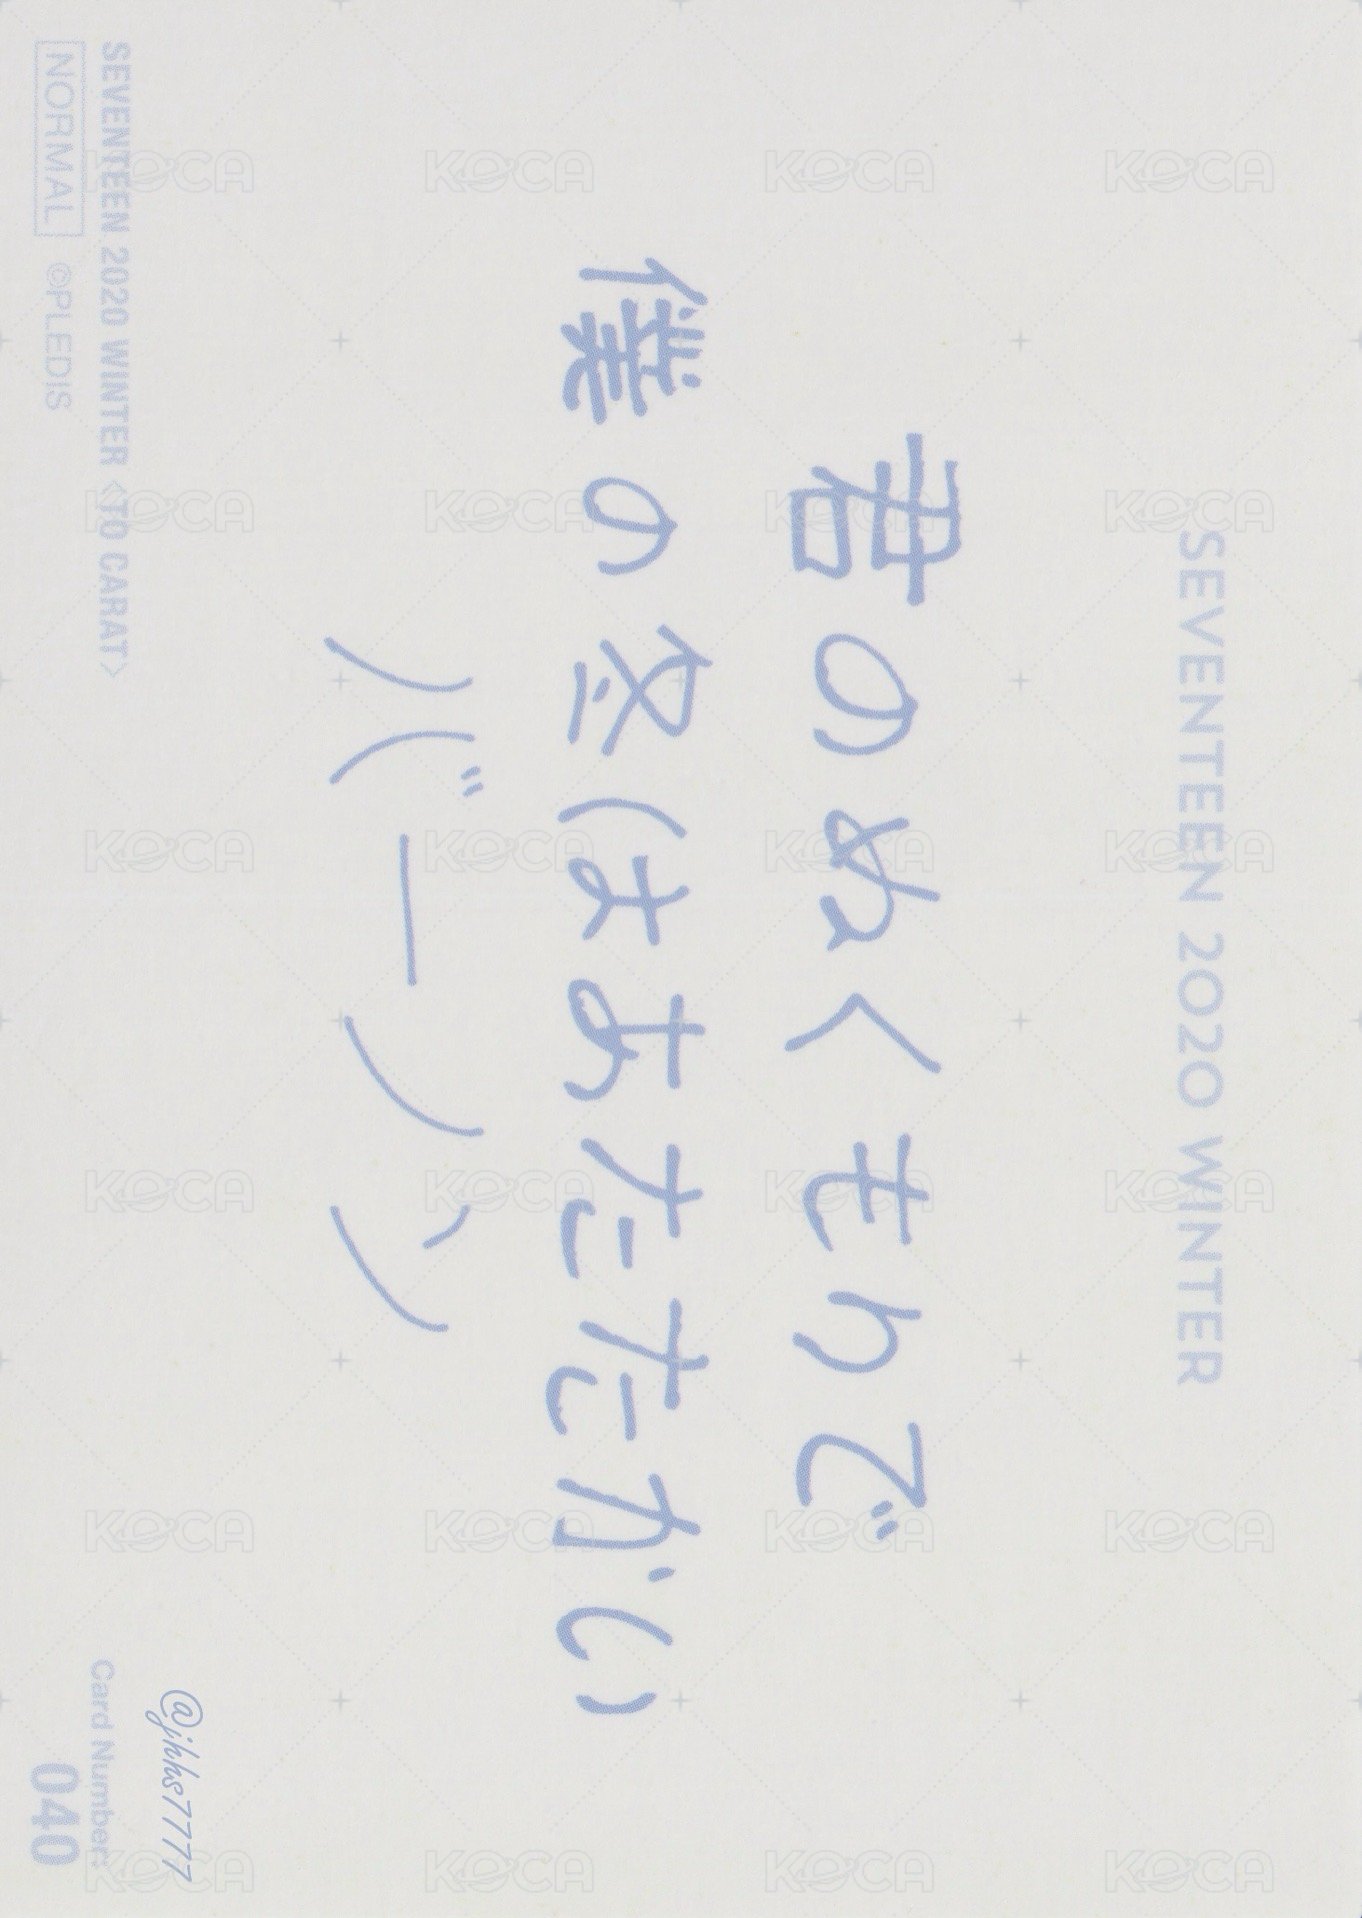 SEVENTEEN 2020 WINTER
君のぬくもりで
僕の冬(はあたたかい)
バーノン
SEVENTEEN 2020 WINTER <TO CARAT>
NORMAL ©PLEDIS
@jhhs7777
Card Number:
040
KOCA